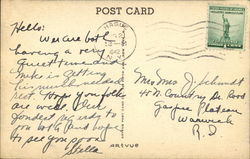 POST CARD
Hello:
We are both
having a very
quiet time and
Mike is getting
his much needed
rest. Hope you folks
are well. Our
fondest regards to
you both and hope
to see you soon
Stella
Mr & Mrs J. Schmidt
Country
Warwick
R.I
ARTVUE